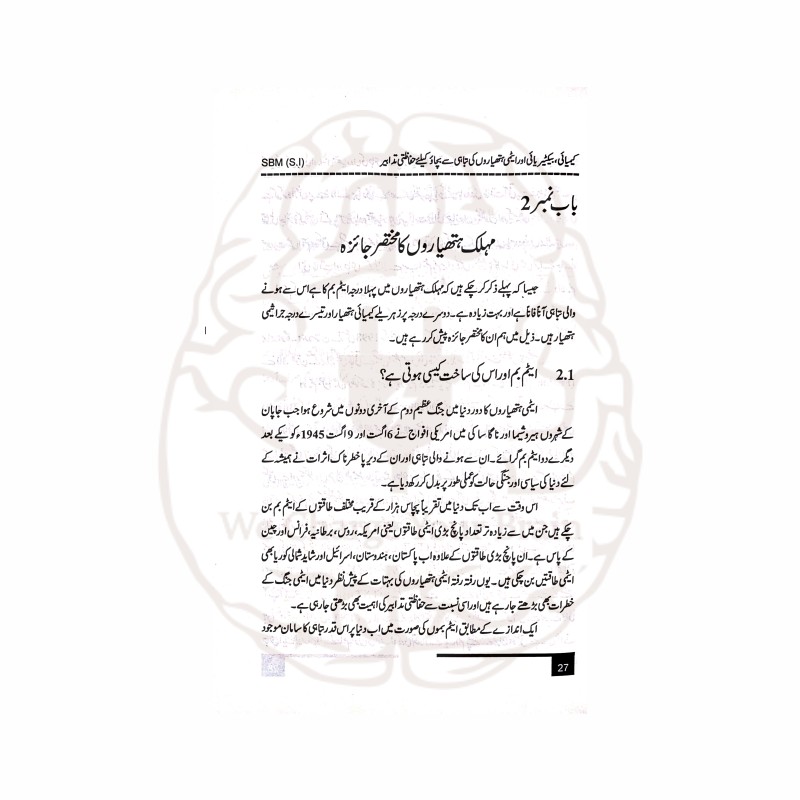 کیمیائی، بیکٹیریائی اور ایٹمی ہتھیاروں کی تباہی سے بچاؤ کیلئے حفاظتی تدابیر SBM (S.I)
باب نمبر 2
مہلک ہتھیاروں کا مختصر جائزہ
جیسا کہ پہلے ذکر کر چکے ہیں کہ مہلک ہتھیاروں میں پہلا درجہ ایٹم بم کا ہے اس سے ہونے
والی تباہی آناً فاناً ہے اور بہت زیادہ ہے۔ دوسرے درجہ پر زہریلے کیمیائی ہتھیار اور تیسرے درجہ جراثیمی
ہتھیار ہیں۔ ذیل میں ہم ان کا مختصر جائزہ پیش کر رہے ہیں۔
2.1 ایٹم بم اور اس کی ساخت کیسی ہوتی ہے؟
ایٹمی ہتھیاروں کا دور دنیا میں جنگ عظیم دوم کے آخری دونوں میں شروع ہوا جب جاپان
کے شہروں ہیروشیما اور ناگاساکی میں امریکی افواج نے 6 اگست اور 9 اگست 1945ء کو یکے بعد
دیگرے دو ایٹم بم گرائے۔ ان سے ہونے والی تباہی اور ان کے دیرپا خطرناک اثرات نے ہمیشہ کے
لئے دنیا کی سیاسی اور جنگی حالت کو عملی طور پر بدل کر رکھ دیا ہے۔
اس وقت سے اب تک دنیا میں تقریباً پچاس ہزار کے قریب مختلف طاقتوں کے ایٹم بم بن
چکے ہیں جن میں سے زیادہ تر تعداد پانچ بڑی ایٹمی طاقتوں یعنی امریکہ، روس، برطانیہ، فرانس اور چین
کے پاس ہے۔ ان پانچ بڑی طاقتوں کے علاوہ اب پاکستان، ہندوستان، اسرائیل اور شاید شمالی کوریا بھی
ایٹمی طاقتیں بن چکی ہیں۔ یوں رفتہ رفتہ ایٹمی ہتھیاروں کی بہتات کے پیش نظر دنیا میں ایٹمی جنگ کے
خطرات بھی بڑھتے جا رہے ہیں اور اسی نسبت سے حفاظتی تدابیر کی اہمیت بھی بڑھتی جا رہی ہے۔
ایک اندازے کے مطابق ایٹم بموں کی صورت میں اب دنیا پر اس قدر تباہی کا سامان موجود
27